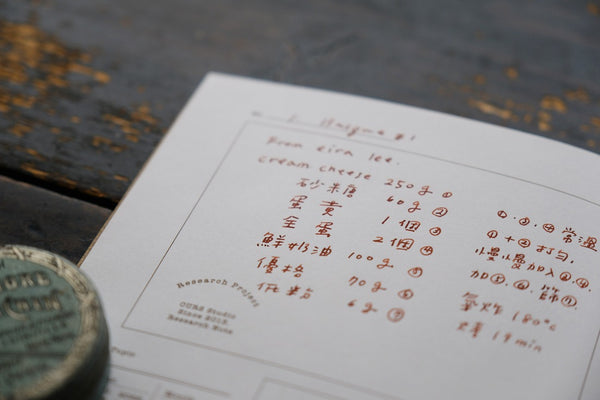 from eira lee.
cream cheese 250g ①
砂糖 60g ②
蛋黃 1個 ③
全蛋 2個 ④
鮮奶油 100g ⑤
優格 70g ⑥
低粉 6g ⑦
①.③.④ 常溫
①+② 打勻.
慢慢加入③.④
加⑤.⑥. 篩⑦.
氣炸 180°c
19 min
Research Project
OURS Studio
Since 2012.
Research Note